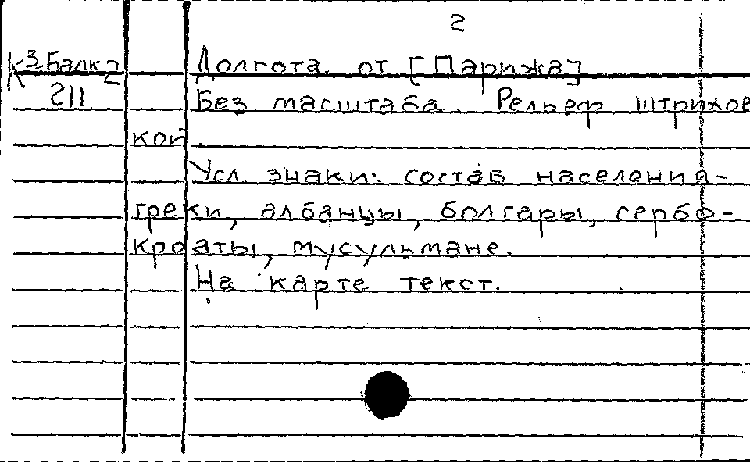 2
К 3 Балк 2 Долгота от [Парижа]
211 Без масштаба. Рельеф штрихов
кой.
Усл. знаки: состав населения-
греки, албанцы, болгары, сербо-
кроаты, мусульмане.
На карте текст.